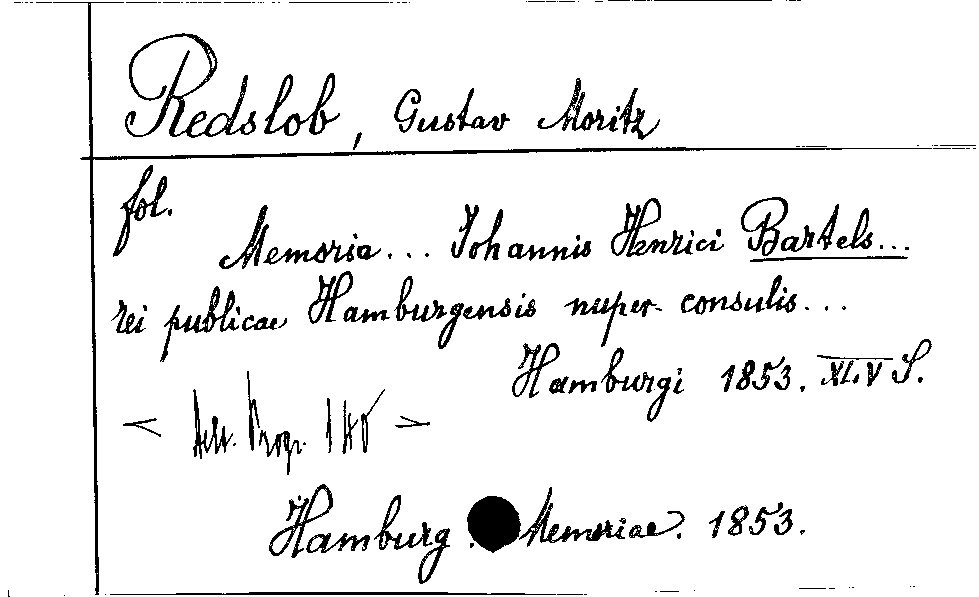 Redslob, Gustav Moritz
fol.
Memoria... Johannis Henrici Bartels...
rei publicae Hamburgensis nuper consulis...
Hamburgi 1853. XLV S.
Progr.
Hamburg. Memoriae. 1853.